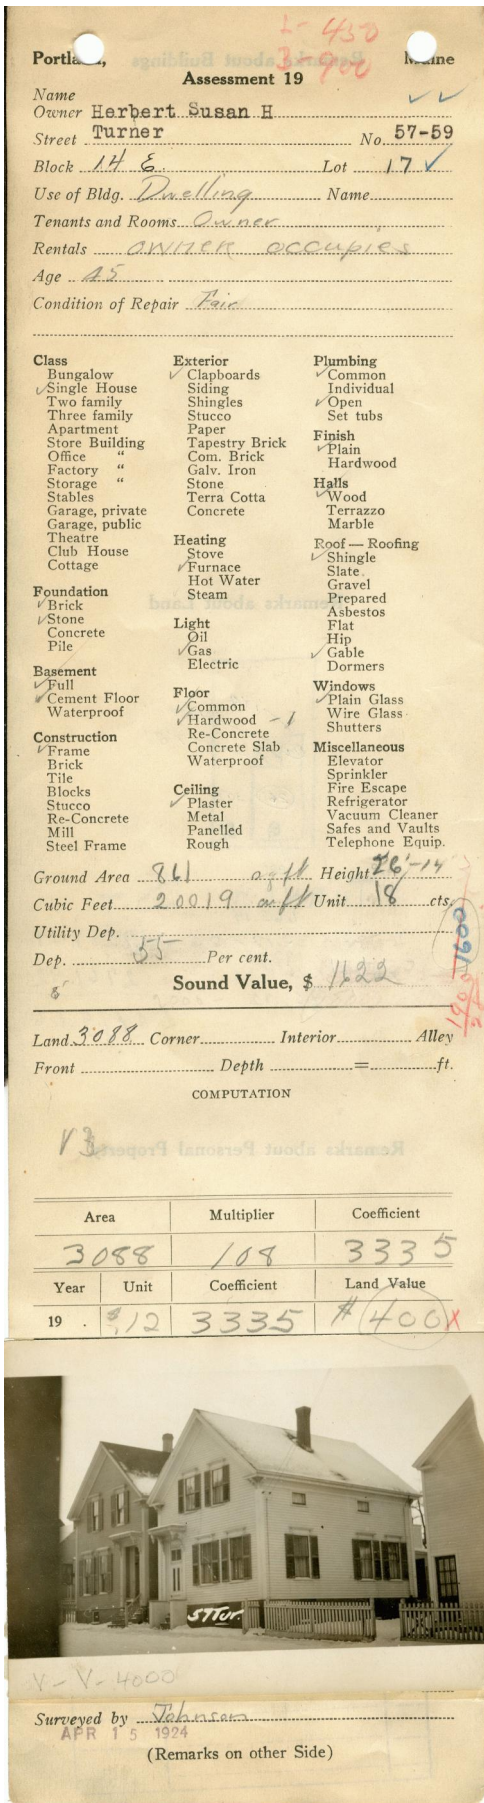 L- 450
3- 900
Portland, Maine
Assessment 19
Name
Owner Herbert Susan H
Street Turner No. 57-59
Block 14 E. Lot 17
Use of Bldg. Dwelling Name
Tenants and Rooms Owner
Rentals owner occupies
Age 45
Condition of Repair Fair
Class
Bungalow
✓Single House
Two family
Three family
Apartment
Store Building
Office "
Factory "
Storage "
Stables
Garage, private
Garage, public
Theatre
Club House
Cottage
Foundation
✓Brick
✓Stone
Concrete
Pile
Basement
✓Full
✓Cement Floor
Waterproof
Construction
✓Frame
Brick
Tile
Blocks
Stucco
Re-Concrete
Mill
Steel Frame
Exterior
✓Clapboards
Siding
Shingles
Stucco
Paper
Tapestry Brick
Com. Brick
Galv. Iron
Stone
Terra Cotta
Concrete
Heating
Stove
✓Furnace
Hot Water
Steam
Light
Oil
✓Gas
Electric
Floor
✓Common
✓Hardwood - 1
Re-Concrete
Concrete Slab
Waterproof
Ceiling
✓Plaster
Metal
Panelled
Rough
Plumbing
✓Common
Individual
✓Open
Set tubs
Finish
✓Plain
Hardwood
Halls
✓Wood
Terrazzo
Marble
Roof — Roofing
✓Shingle
Slate
Gravel
Prepared
Asbestos
Flat
Hip
✓Gable
Dormers
Windows
✓Plain Glass
Wire Glass
Shutters
Miscellaneous
Elevator
Sprinkler
Fire Escape
Refrigerator
Vacuum Cleaner
Safes and Vaults
Telephone Equip.
Ground Area 861 sq ft Height 26'-14
Cubic Feet 20019 cu ft Unit 18 cts.
Utility Dep.
Dep. 55 Per cent.
Sound Value, $ 1622
1600
Land 3088 Corner Interior Alley
Front Depth = ft.
COMPUTATION
V3
Area Multiplier Coefficient
3088 108 3335
Year Unit Coefficient Land Value
19 . $.12 3335 # 400 X
57 Tur.
V - V - 4000
Surveyed by Johnson
APR 15 1924
(Remarks on other Side)